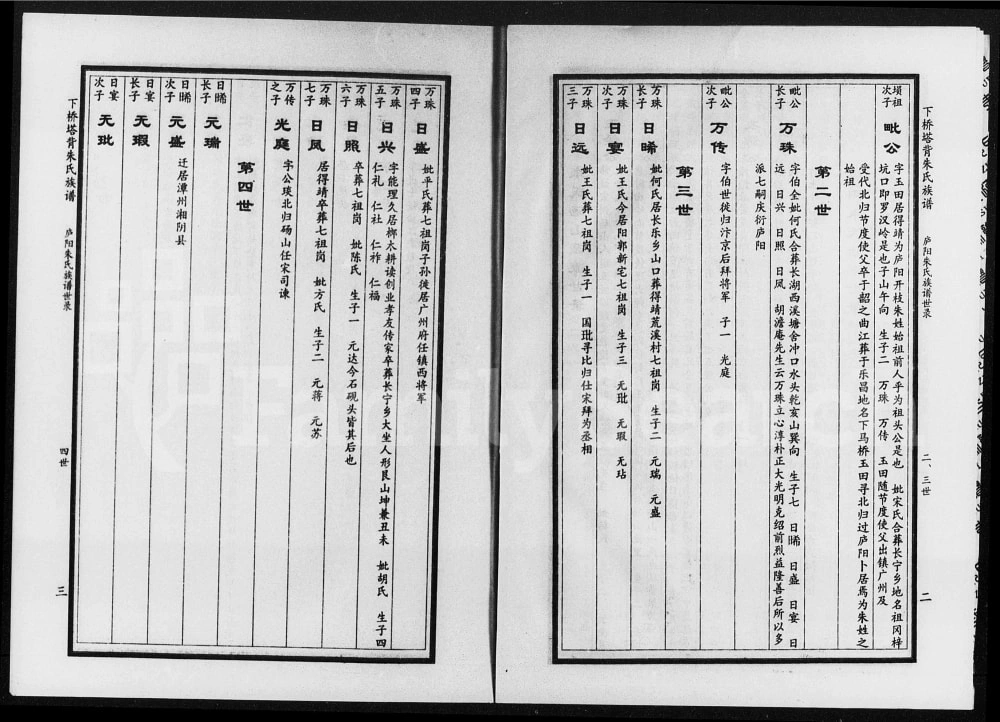 下桥塔背朱氏族谱
庐阳朱氏族谱世录
二、三世
二
埙祖次子
毗公
字玉田居得靖为庐阳开枝朱姓始祖前人乎为祖头公是也 妣宋氏合葬长宁乡地名祖冈梓
坑口即罗汉岭是也子山午向 生子二 万珠 万传 玉田随节度使父出镇广州及
受代北归节度使父卒于韶之曲江葬于乐昌地名下马桥玉田寻北归过庐阳卜居焉为朱姓之
始祖
第二世
毗公长子
万珠
字伯全妣何氏合葬长湖西溪塘舍冲口水头乾亥山巽向 生子七 日晞 日盛 日宴 日
远 日兴 日照 日凤 胡澹庵先生云万珠立心淳朴正大光明克绍前烈益隆善后所以多
派七嗣庆衍庐阳
毗公次子
万传
字伯世徙归汴京后拜将军 子一 光庭
第三世
万珠长子
日晞
妣何氏居长乐乡山口葬得靖荒溪村七祖岗 生子二 元瑞 元盛
万珠次子
日宴
妣王氏今居阳郭新宅七祖岗 生子三 元玭 元瑕 无玷
万珠三子
日远
妣王氏葬七祖岗 生子一 国玭寻比归仕宋拜为丞相
万珠四子
日盛
妣平氏葬七祖岗子孙徙居广州府任镇西将军
万珠五子
日兴
字能理久居榔木耕读创业孝友传家卒葬长宁乡大坐人形艮山坤兼丑未 妣胡氏 生子四
仁礼 仁社 仁祚 仁福
万珠六子
日照
卒葬七祖岗 妣陈氏 生子一 元达今石砚头皆其后也
万珠七子
日凤
居得靖卒葬七祖岗 妣方氏 生子二 元蒋 元苏
万传之子
光庭
字公琰北归砀山任宋司谏
第四世
日晞长子
元瑞
日晞次子
元盛
迁居漳州湘阴县
日宴长子
无瑕
日宴次子
无玭
下桥塔背朱氏族谱
庐阳朱氏族谱世录
四世
三